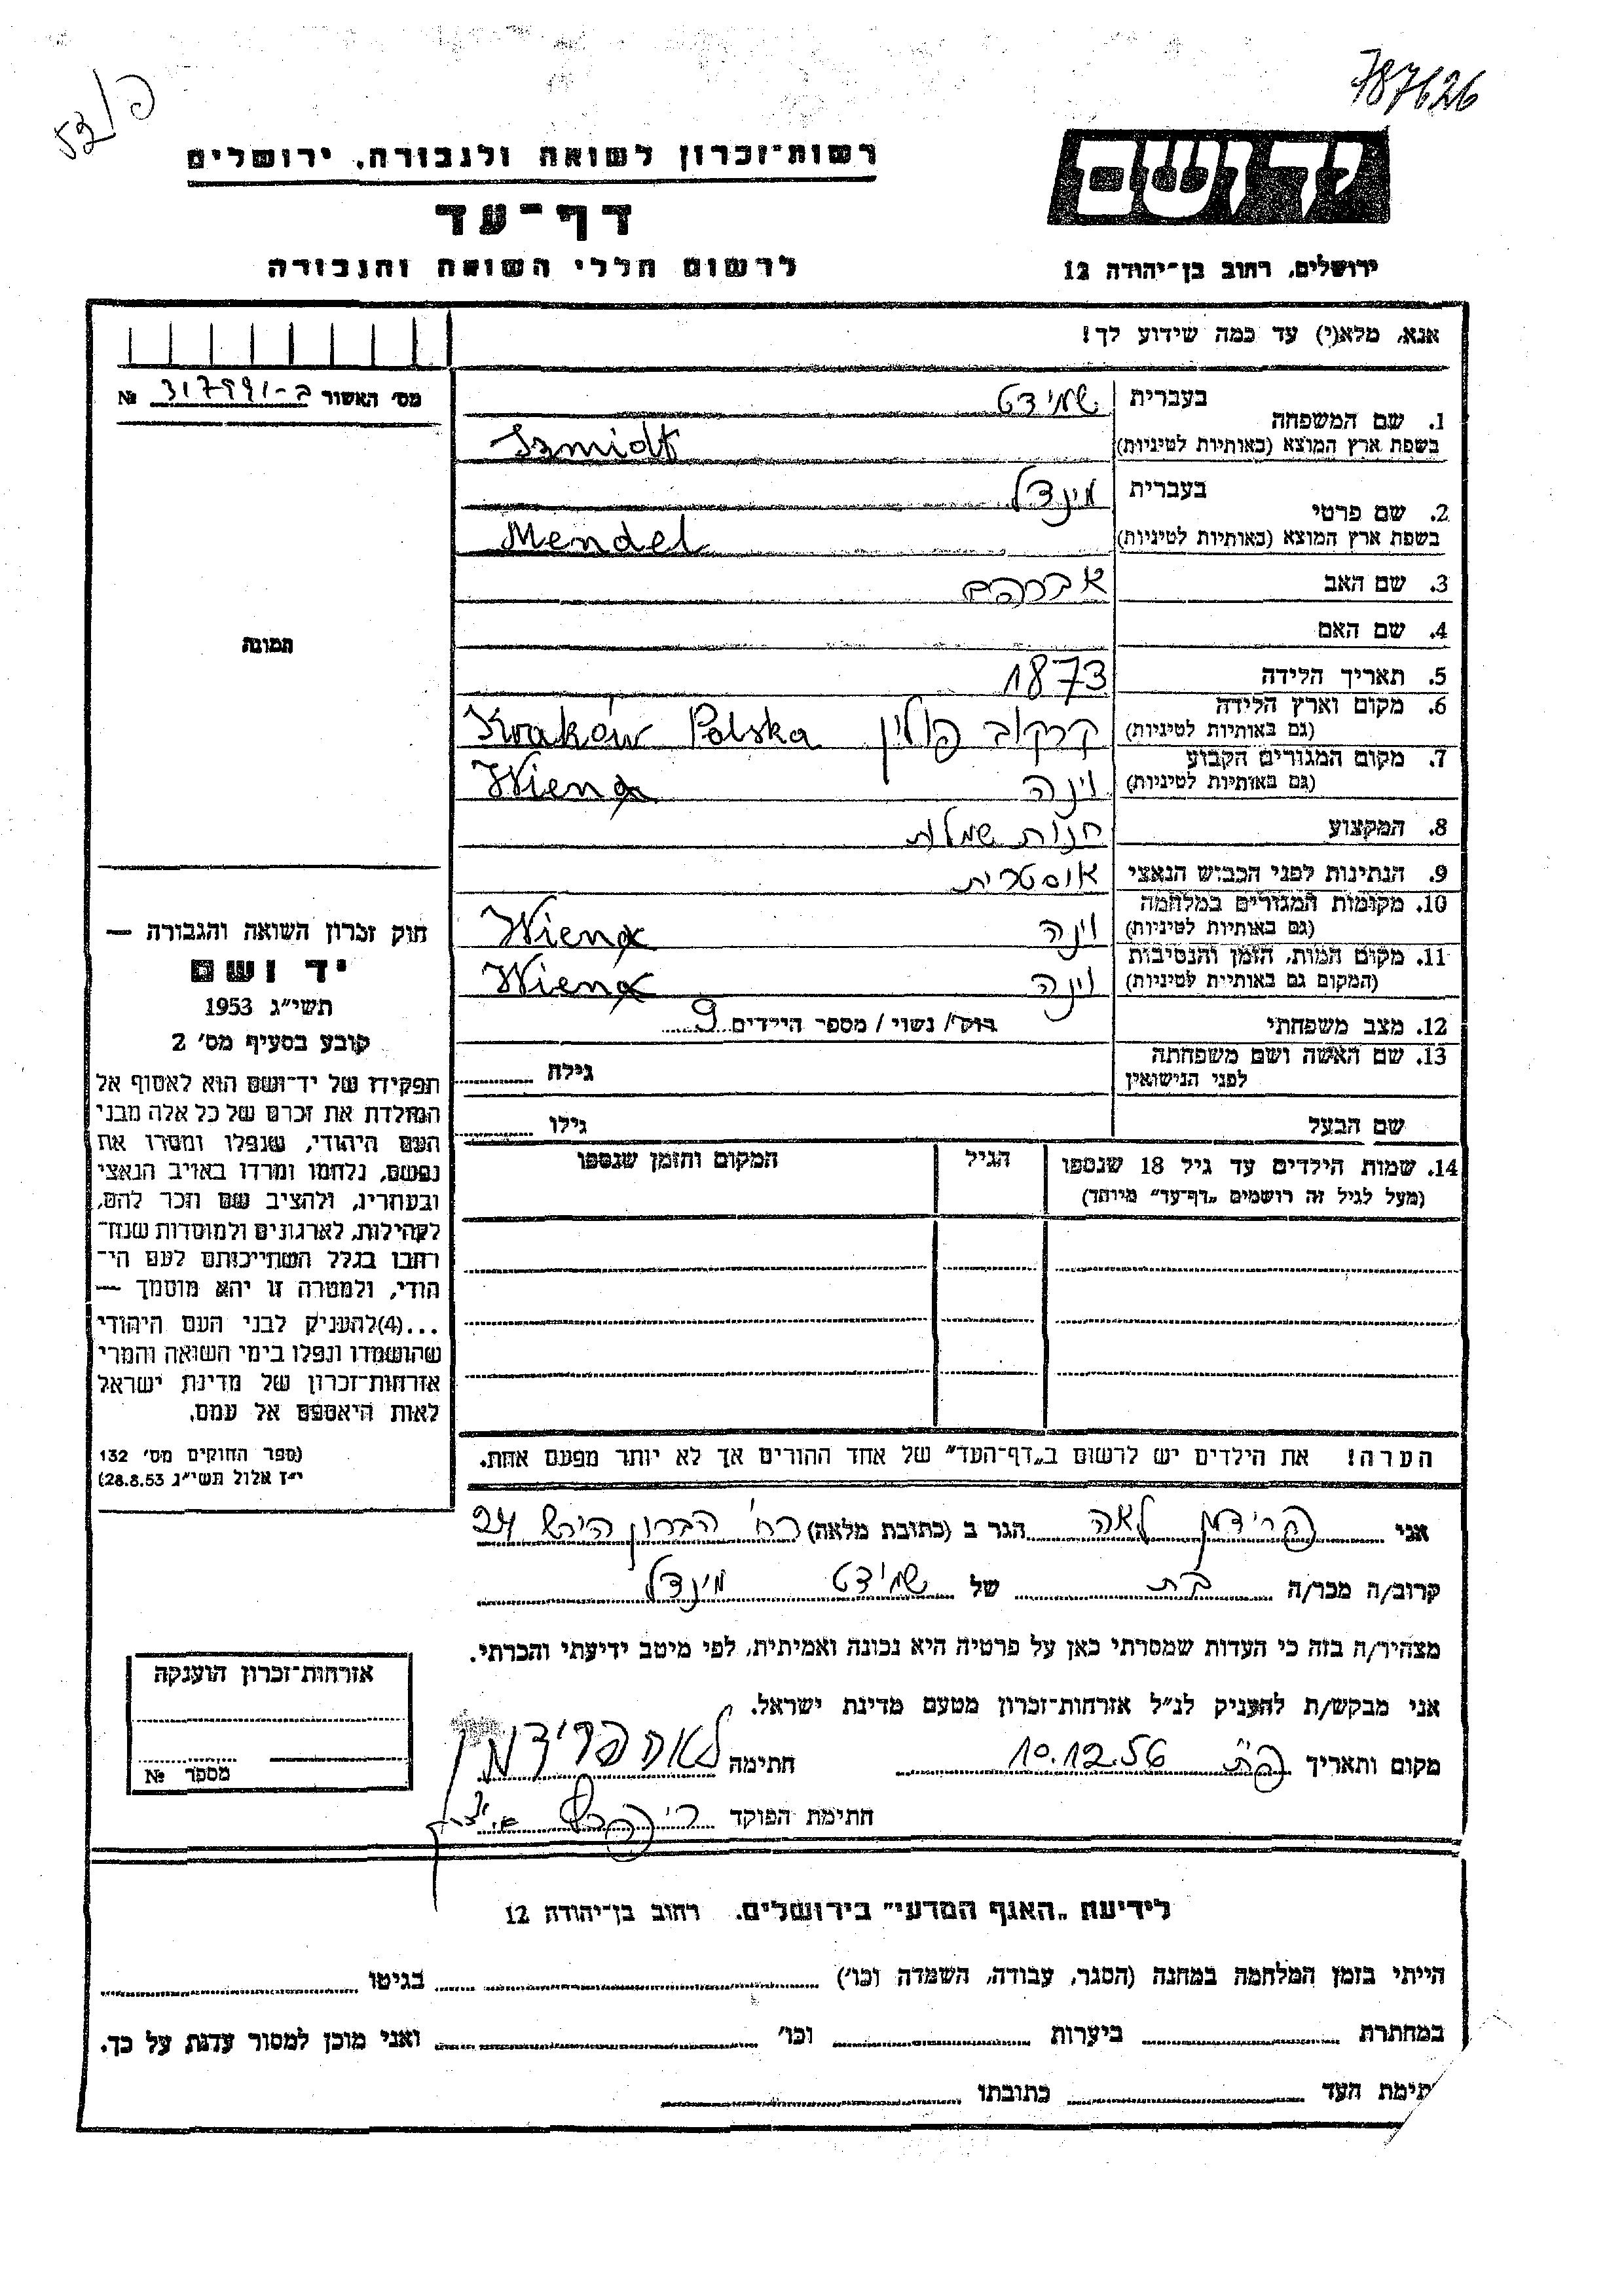 787626
53/פ
ידושם
רשות־זכרון לשואה ולגבורה, ירושלים
דף־עד
לרשום חללי השואה והגבורה
ירושלים, רחוב בן־יהודה 12
אנא, מלא(י) עד כמה שידוע לך!
מס׳ האשור ב-317991 №
1. שם המשפחה בעברית שמידט
בשפת ארץ המוצא (באותיות לטיניות) Szmidt
2. שם פרטי בעברית מינדל
בשפת ארץ המוצא (באותיות לטיניות) Mendel
3. שם האב אברהם
4. שם האם
תמונה
5. תאריך הלידה 1873
6. מקום וארץ הלידה
(גם באותיות לטיניות) קרקוב פולין Kraków Polska
7. מקום המגורים הקבוע
(גם באותיות לטיניות) וינה Wiena
8. המקצוע חנות שמלות
9. הנתינות לפני הכבוש הנאצי אוסטרית
10. מקומות המגורים במלחמה
(גם באותיות לטיניות) וינה Wiena
11. מקום המות, הזמן והנסיבות
(המקום גם באותיות לטיניות) וינה Wiena
12. מצב משפחתי רוק/ נשוי / מספר הילדים 9
13. שם האשה ושם משפחתה
לפני הנישואין גילה
שם הבעל גילו
14. שמות הילדים עד גיל 18 שנספו הגיל המקום והזמן שנספו
(מעל לגיל זה רושמים „דף־עד״ מיוחד)
חוק זכרון השואה והגבורה —
יד ושם
תשי״ג 1953
קובע בסעיף מס׳ 2
תפקידו של יד־ושם הוא לאסוף אל
המולדת את זכרם של כל אלה מבני
העם היהודי, שנפלו ומסרו את
נפשם, נלחמו ומרדו באויב הנאצי
ובעוזריו, ולהציב שם וזכר להם,
לקהילות, לארגונים ולמוסדות שנח־
רבו בגלל השתייכותם לעם הי־
הודי, ולמטרה זו יהא מוסמך —
...(4)להעניק לבני העם היהודי
שהושמדו ונפלו בימי השואה והמרי
אזרחות־זכרון של מדינת ישראל
לאות היאספם אל עמם.
(ספר החוקים מס׳ 132
י״ז אלול תשי״ג 28.8.53)
הערה! את הילדים יש לרשום ב„דף־העד״ של אחד ההורים אך לא יותר מפעם אחת.
אני פרידמן לאה הגר ב (כתובת מלאה) רח׳ הברון הירש 24
קרוב/ה מכר/ה בת של שמידט מינדל
מצהיר/ה בזה כי העדות שמסרתי כאן על פרטיה היא נכונה ואמיתית, לפי מיטב ידיעתי והכרתי.
אני מבקש/ת להעניק לנ״ל אזרחות־זכרון מטעם מדינת ישראל.
מקום ותאריך פ״ת 10.12.56 חתימה לאה פרידמן
חתימת הפוקד
אזרחות־זכרון הוענקה
מספר №
לידיעת „האגף המדעי״ בירושלים. רחוב בן־יהודה 12
הייתי בזמן המלחמה במחנה (הסגר, עבודה, השמדה וכו׳) בגיטו
במחתרת ביערות וכו׳ ואני מוכן למסור עדות על כך.
תימת העד כתובתו